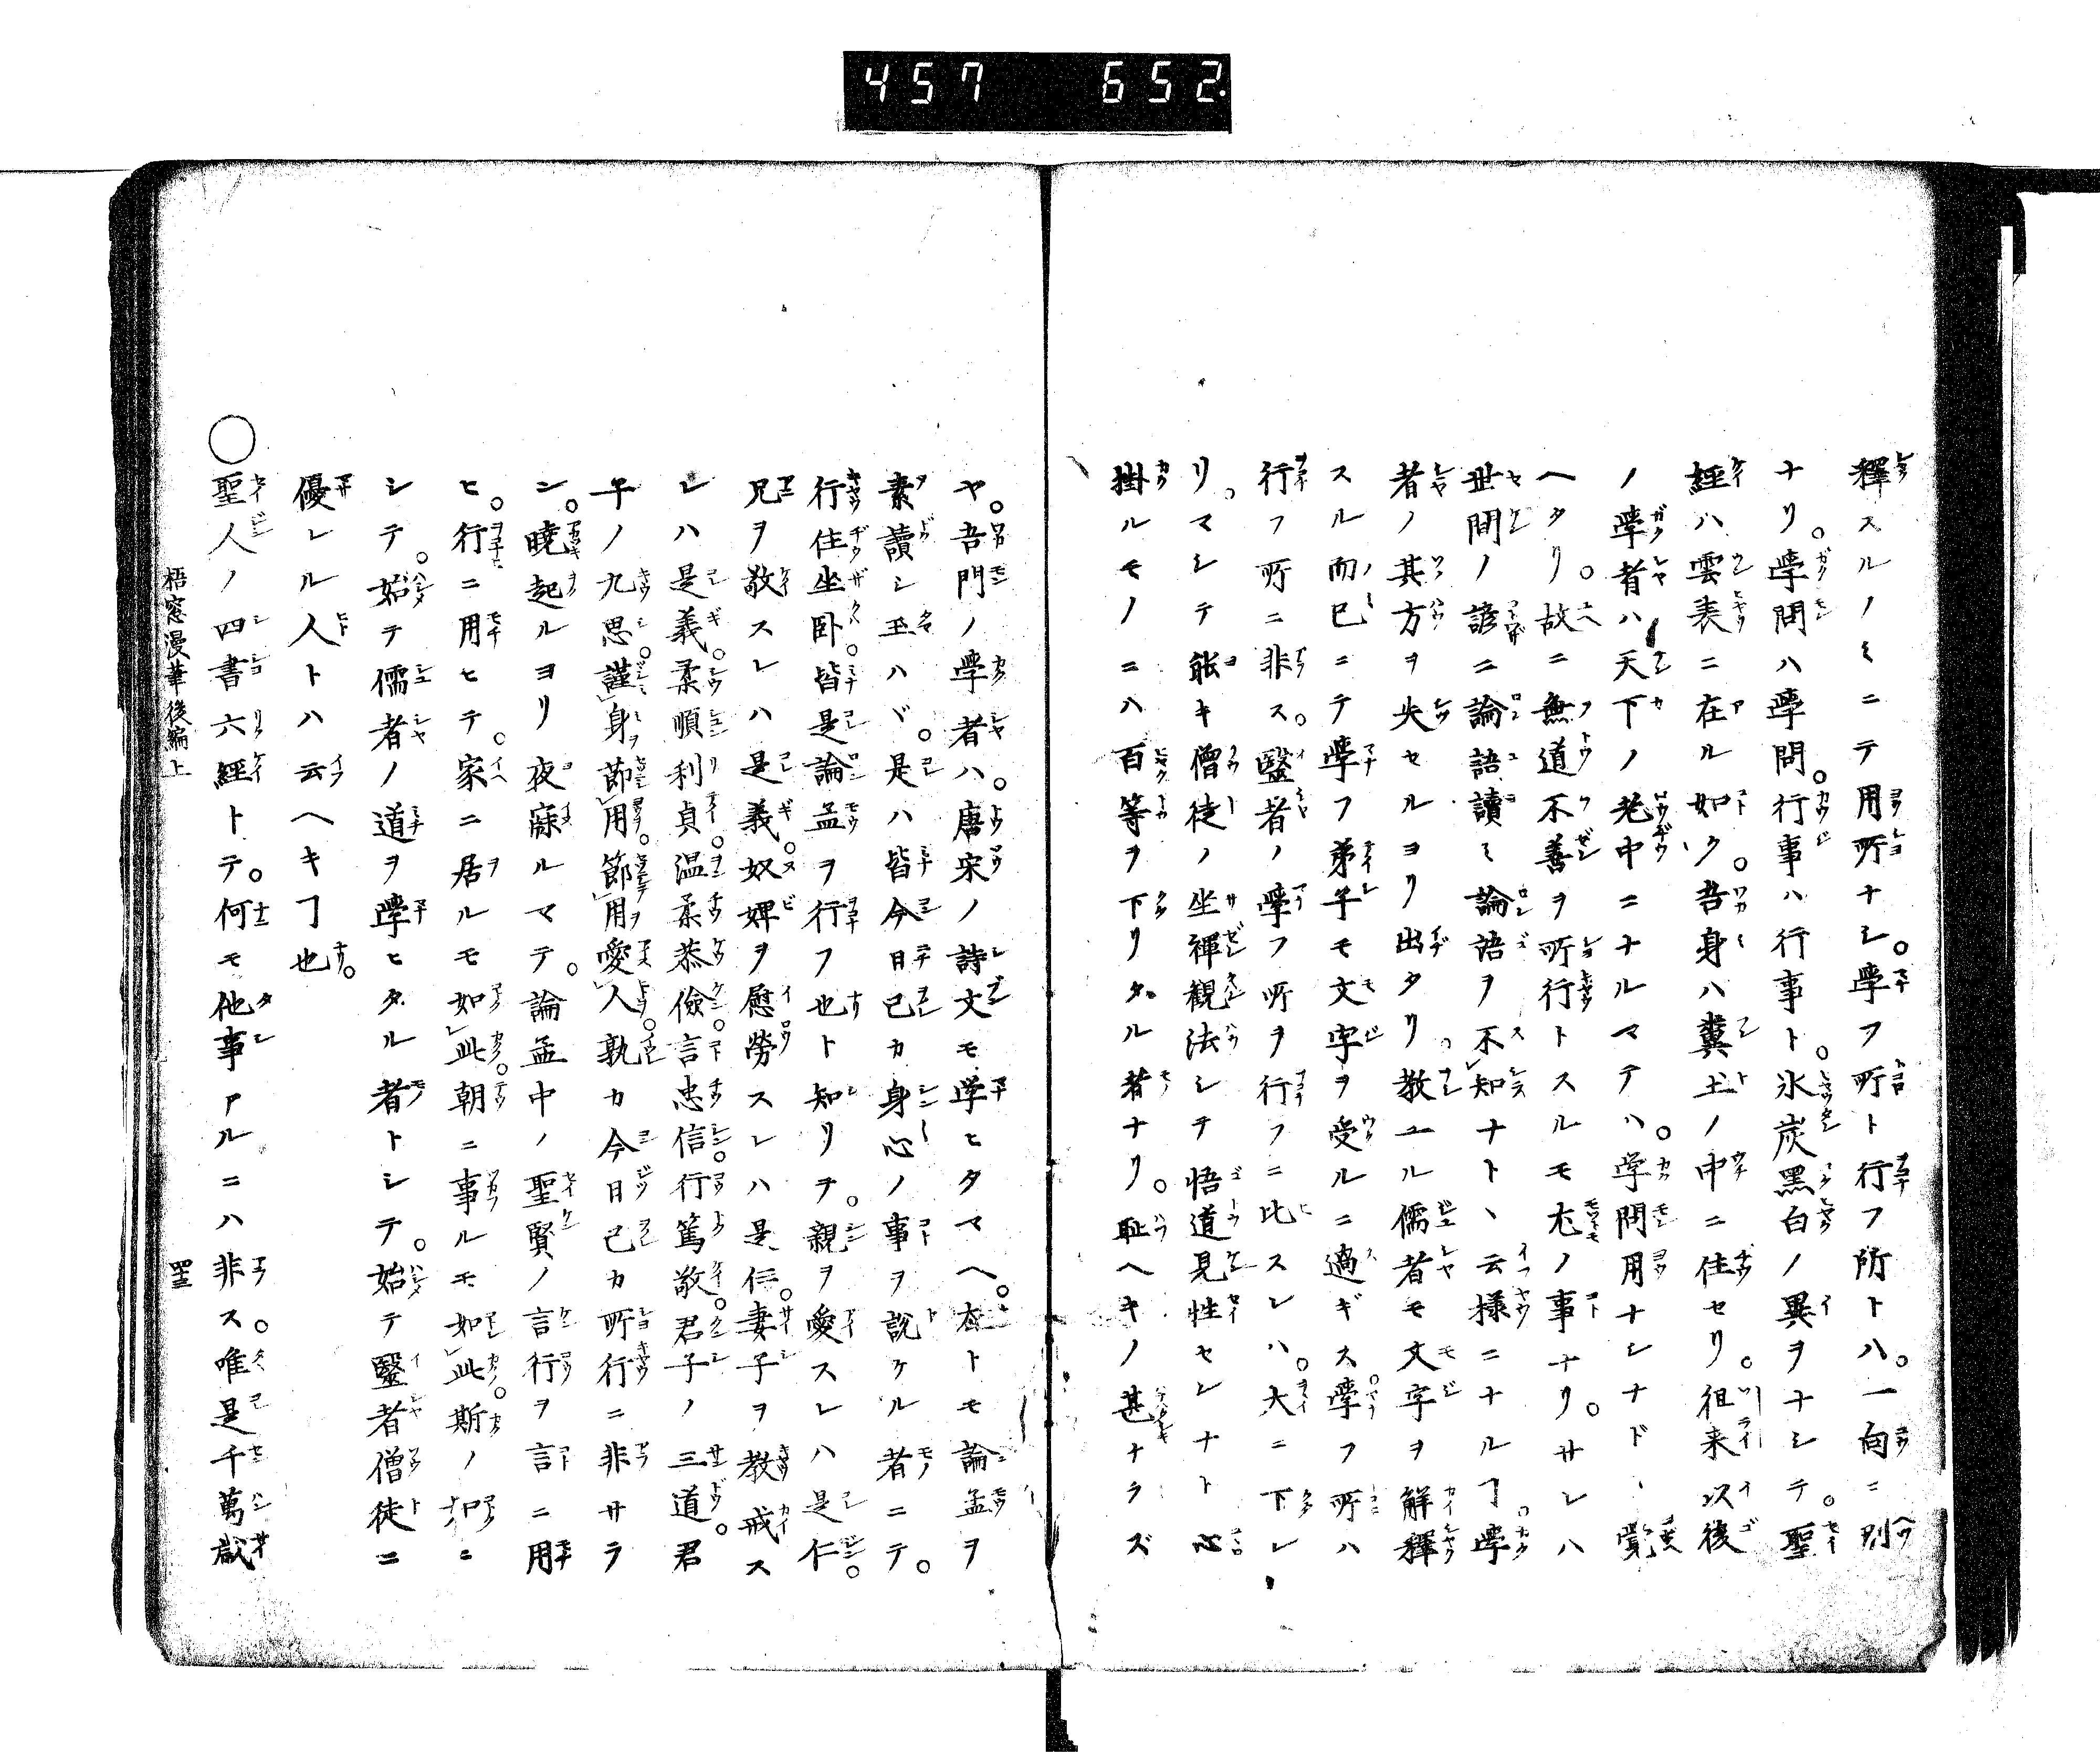 457 652.
釋スルノミニテ用所ナシ。學フ所ト行フ所トハ。一向ニ別
ナリ。學問ハ學問。行事ハ行事ト。氷炭黑白ノ異ヲナシテ。聖
經ハ雲表ニ在ル如ク。吾身ハ糞土ノ中ニ住セリ。徂来以後
ノ學者ハ天下ノ老中ニナルマテハ。学問用ナシナド、覺
ヘタリ。故ニ無道不善ヲ所行トスルモ尤ノ事ナリ。サレハ
世間ノ諺ニ論語讀ミ論語ヲ不知ナト、云樣ニナルヿ。學
者ノ其方ヲ失セルヨリ出タリ。教ユル儒者モ文字ヲ解釋
スル而已ニテ學フ弟子モ文字ヲ受ルニ過ギス。學フ所ハ
行フ所ニ非ス。醫者ノ學フ所ヲ行フニ比スレハ。大ニ下レ
リ。マシテ能キ僧徒ノ坐禪觀法シテ悟道見性セントナト心
掛ルモノニハ百等ヲ下リタル者ナリ。恥ヘキノ甚ナラズ
ヤ。吾門ノ學者ハ。唐宋ノ詩文モ学ヒタマヘ。尤トモ論孟ヲ
素讀シ玉ハヾ。是ハ皆今日己カ身心ノ事ヲ說ケル者ニテ。
行住坐臥。皆是論孟ヲ行フ也ト知リテ。親ヲ愛スレハ是仁。
兄ヲ敬スレハ是義。奴婢ヲ慰勞スレハ是仁。妻子ヲ教戒ス
レハ是義。柔順利貞。溫柔恭儉。言忠信。行篤敬。君子ノ三道。君
子ノ九思。謹身節用。節用愛人孰カ今日己カ所行ニ非サラ
ン。曉起ルヨリ夜寐ルマテ。論孟中ノ聖賢ノ言行ヲ言ニ用
ヒ。行ニ用ヒテ。家ニ居ルモ如此。朝ニ事ルモ如此。斯ノ如ニ
シテ。始テ儒者ノ道ヲ學ヒタル者トシテ。始テ醫者僧徒ニ
優レル人トハ云ヘキヿ也。
○聖人ノ四書六經トテ。何モ他事アルニハ非ス。唯是千萬歲
梧窓漫筆後編上